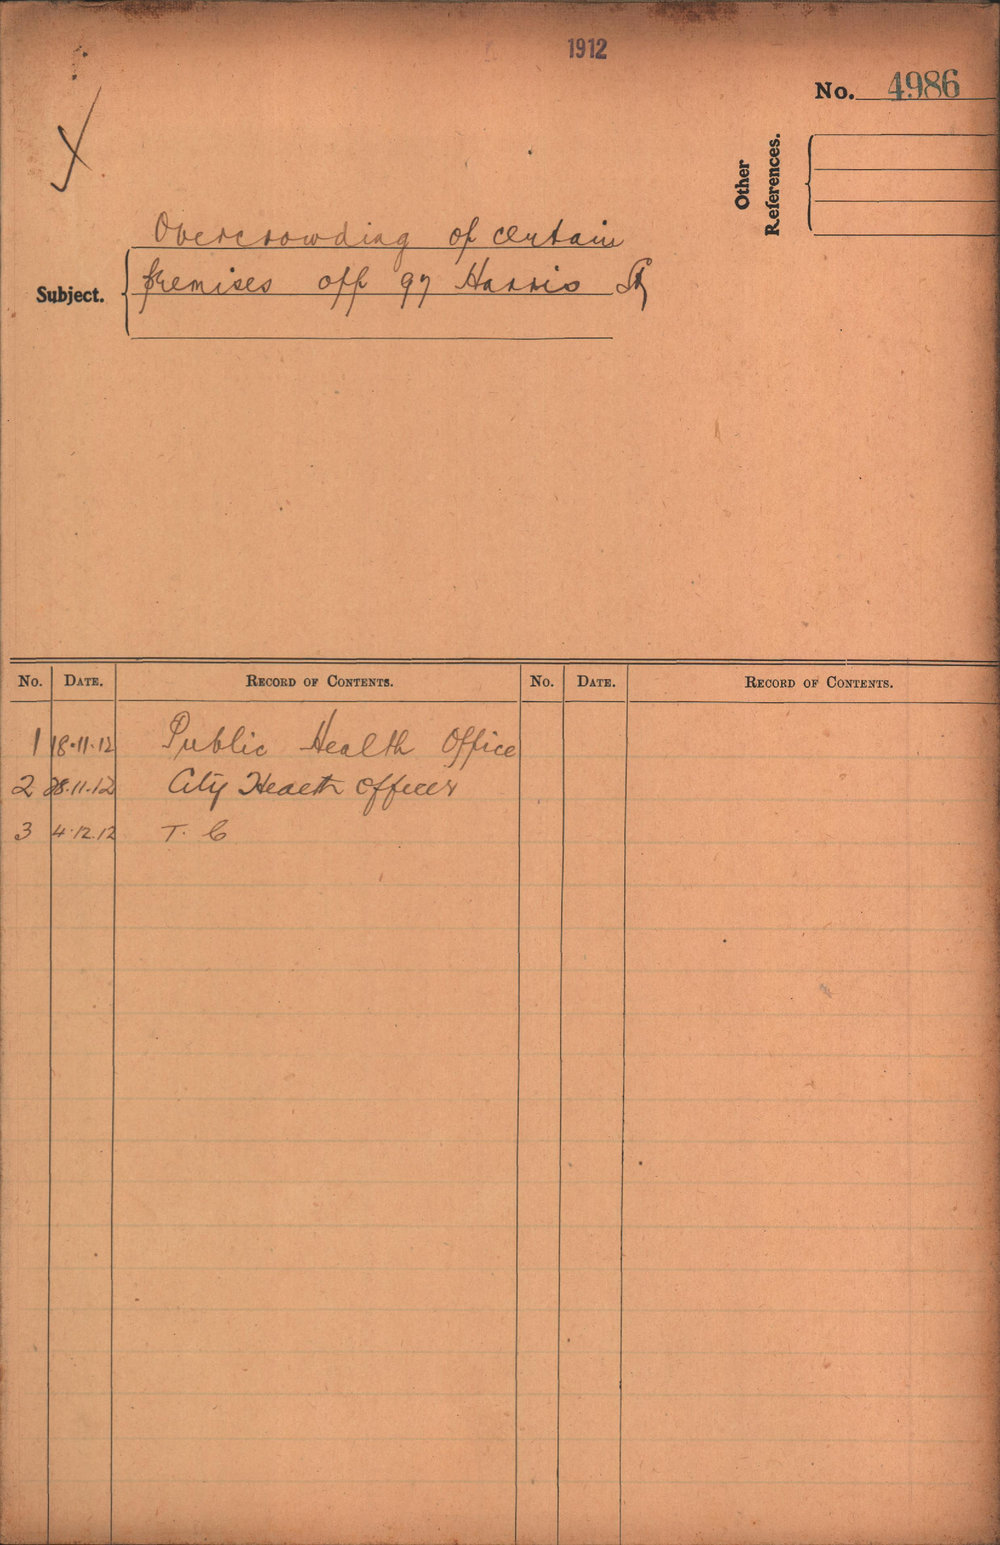 1912
No. 4986
Other References.
Overcrowding of certain
Subject. premises off 97 Harris St
No. DATE. RECORD OF CONTENTS. No. DATE. RECORD OF CONTENTS.
1 18.11.12 Public Health Office
2 28.11.12 City Health Officer
3 4.12.12 T. C